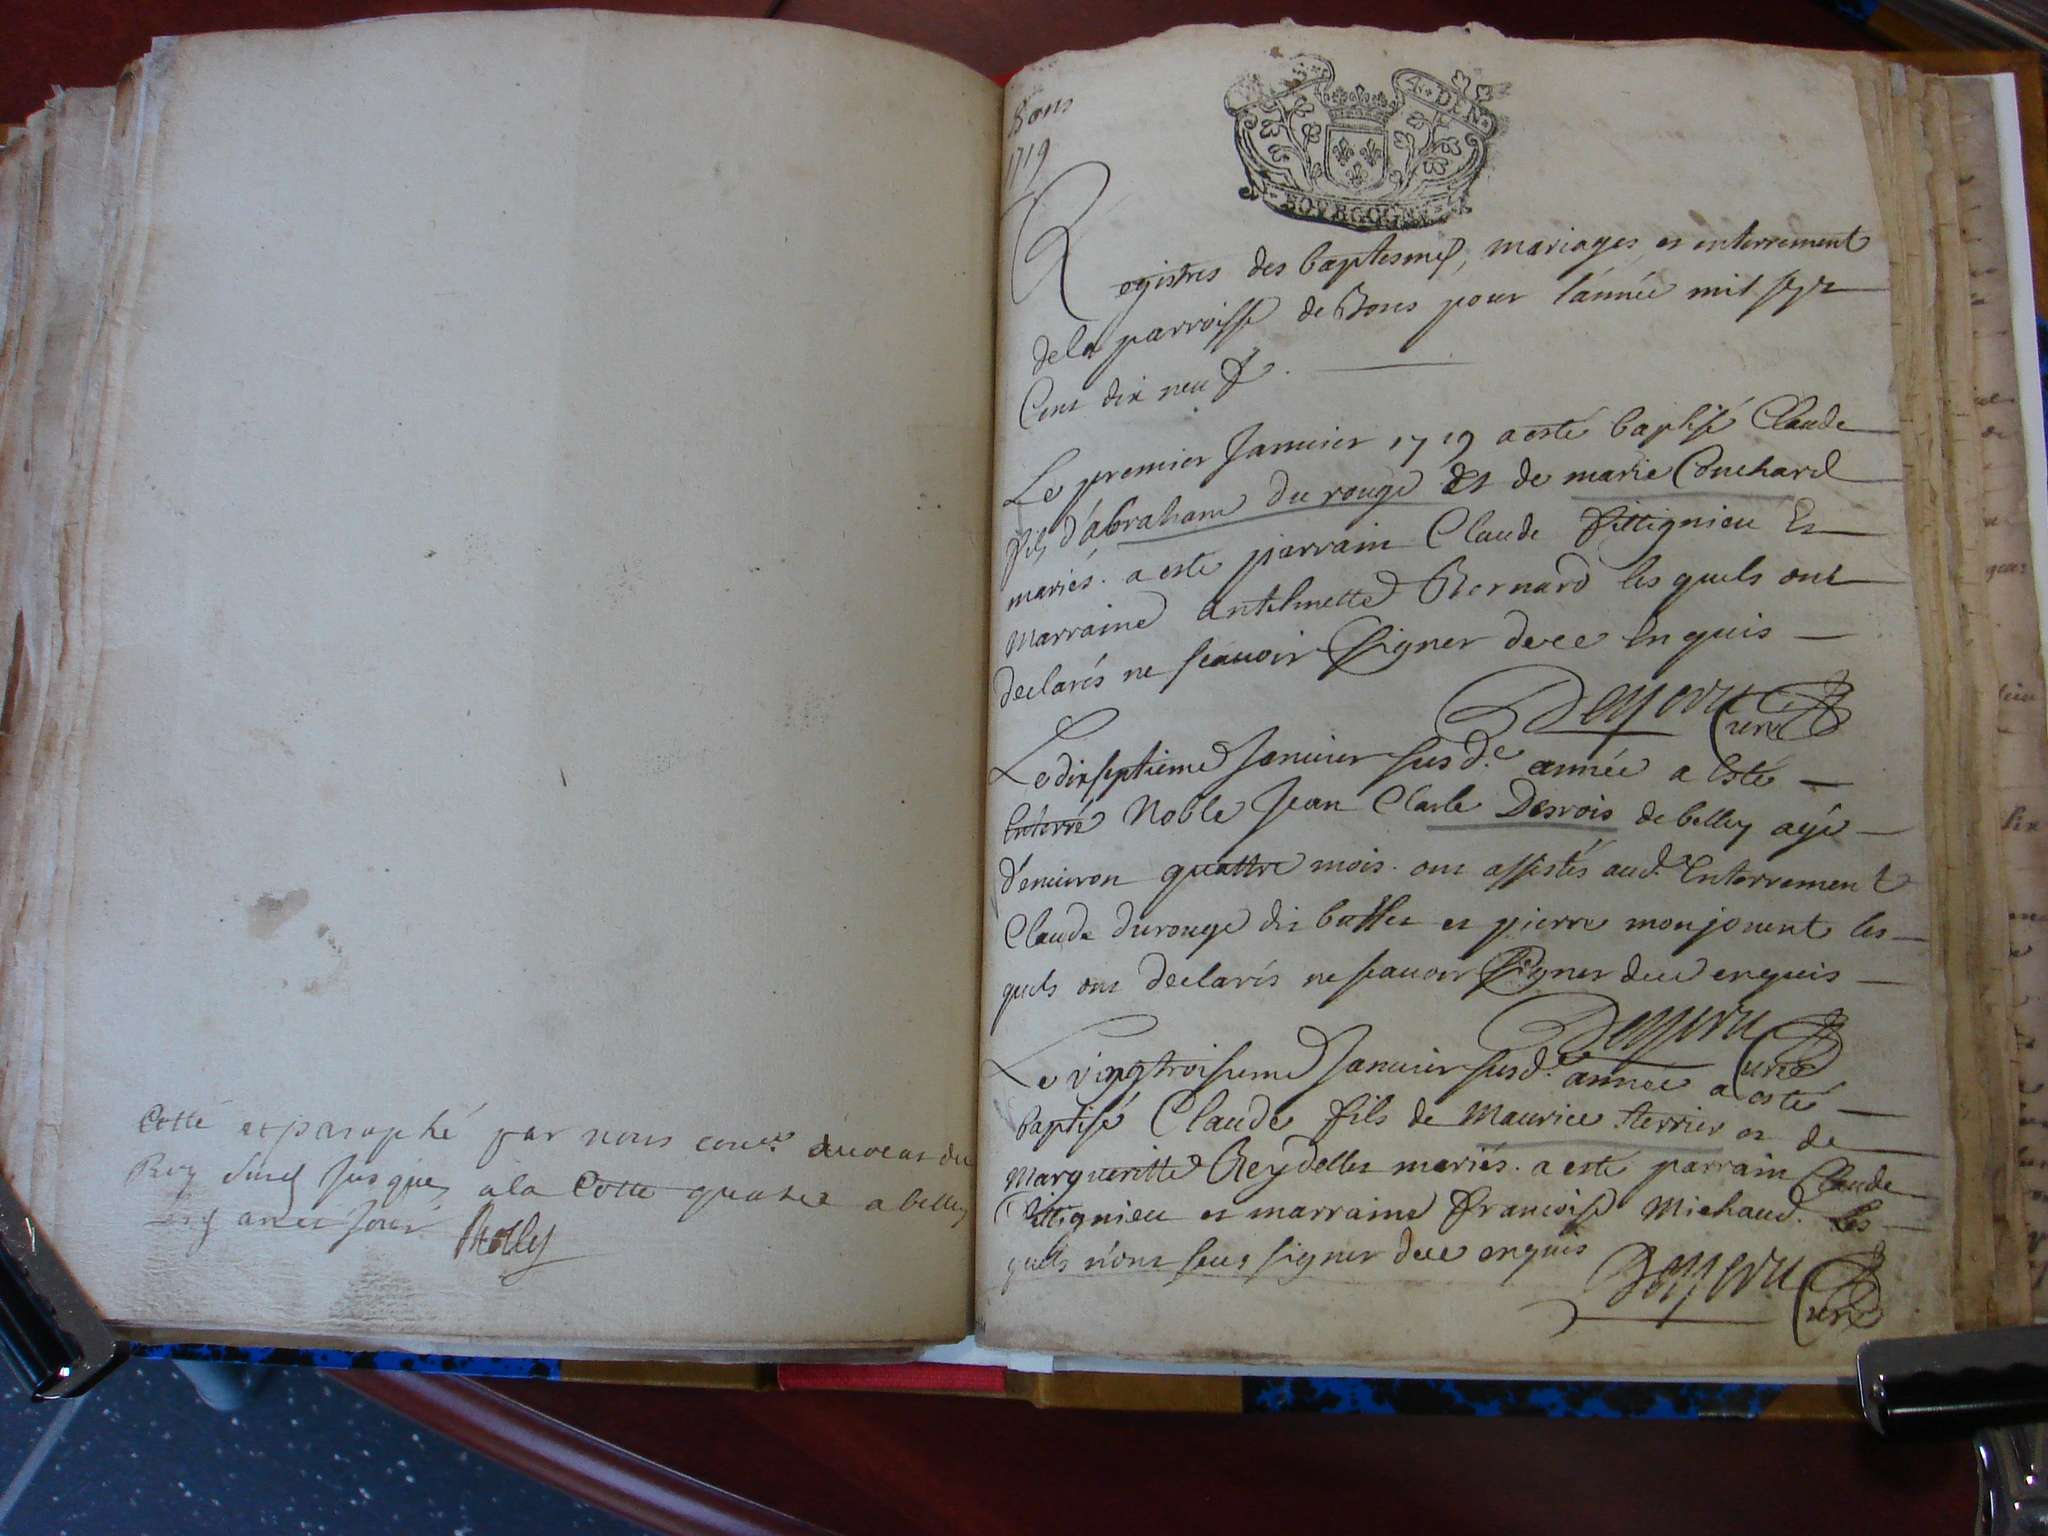 Cotté et paraphé par nous con.er avocat du
Roy jusques a la Cotte quatre a belley
Bons
1719
4 · DEN
BOVRGOGNE
Registres des baptesmes, mariages, et enterrement
de la parroisse de Bons pour l'année mil sept
Cent dix neuf.
Le premier Januier 1719 a esté baptisé Claude
fils d'abraham du rouge Et de marie Couchard
mariés. a esté parrain Claude fittignieu Et
Marraine antelmette Bernard les quels ont
declarés ne scauoir signer de ce Enquis
Cure
Le dixseptieme Januier susd.e année a Esté
Enterré Noble Jean Claude Desrois de belley agé
d'enuiron quattre mois. ont assistés aud. Enterrement
Claude durouge dit buffet et pierre monjouent les
quels ont declarés ne scauoir signer de ce enquis
Cure
Le vingtroisieme Januier susd.e année a esté
baptisé Claude fils de Maurice terrier et de
Margueritte Reydellet mariés. a esté parrain Claude
fittignieu et marraine francoise Michaud. les
quels n'ont sceus signer de ce enquis
Cure